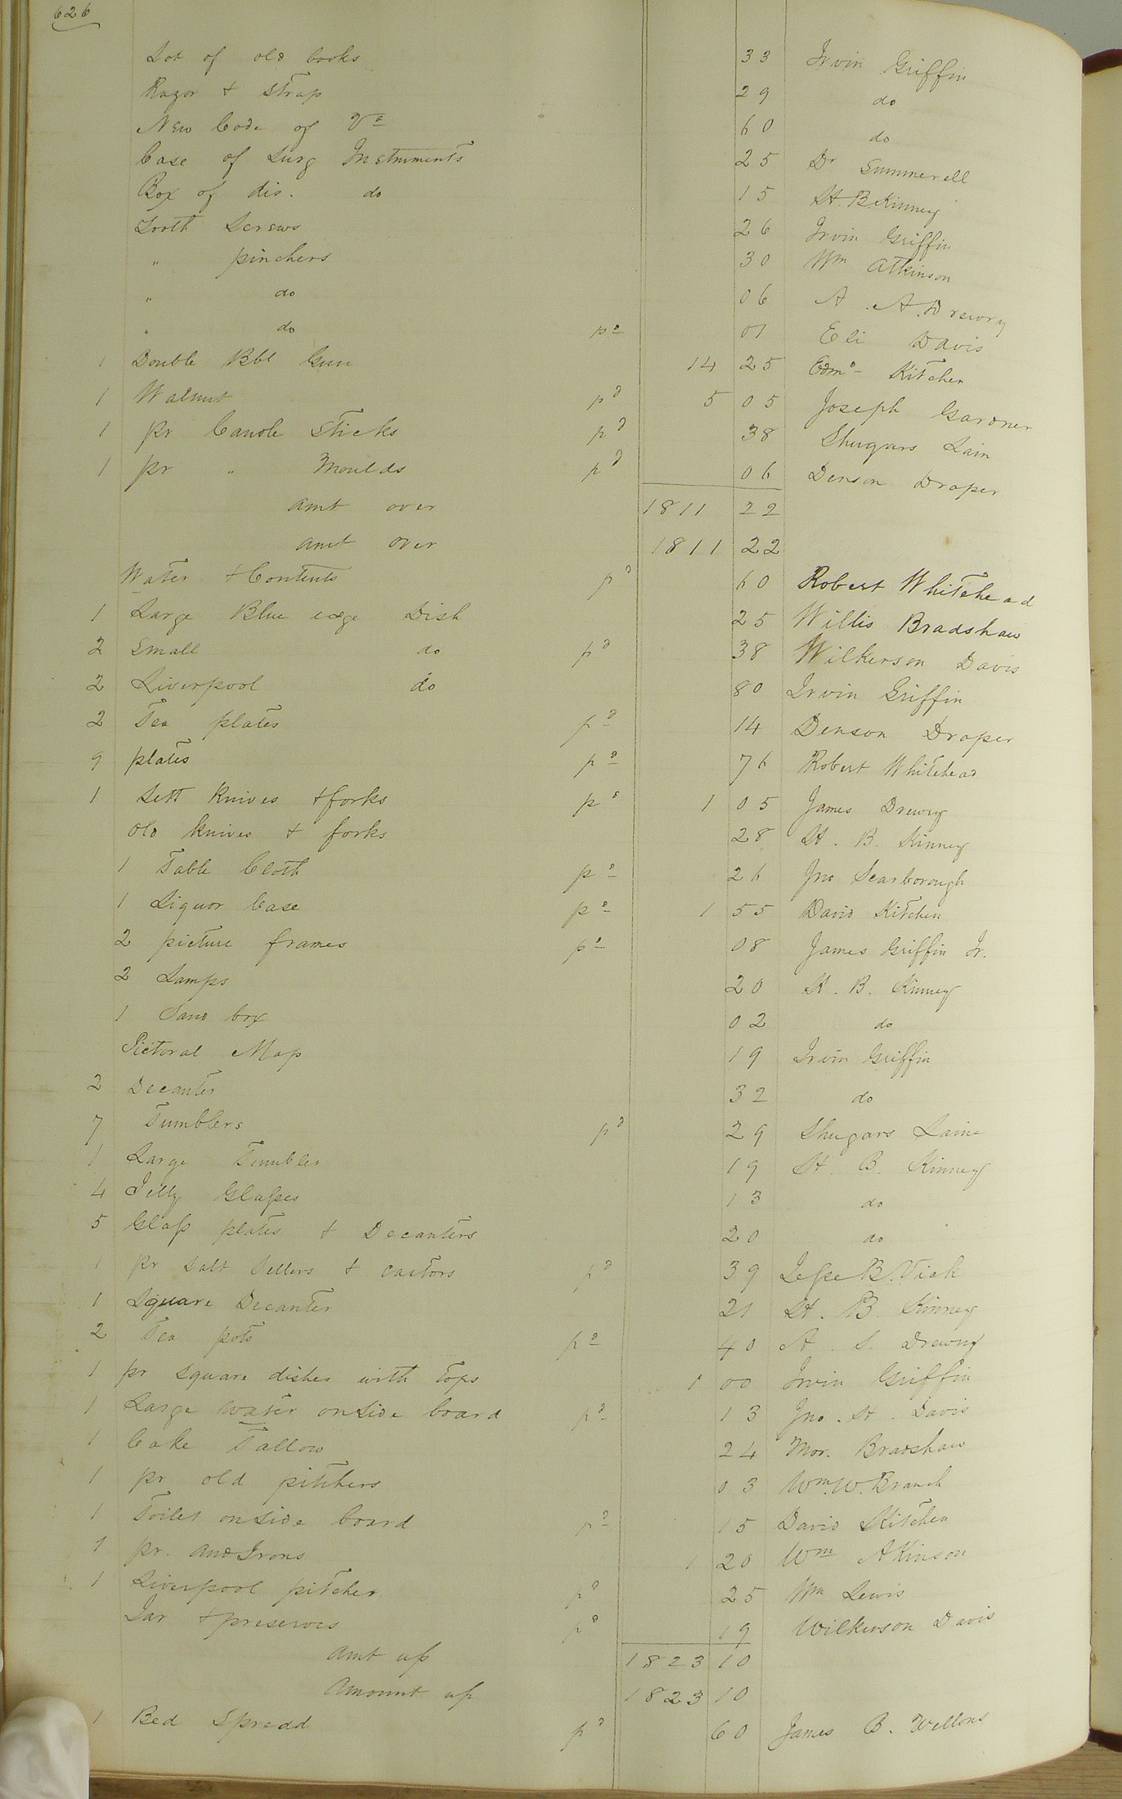 626
Lot of old books 33 Irvin Griffin
Razor & Strap 29 do
New Code of Va 60 do
Case of Surg Instruments 25 Dr Summerell
Box of dis. do 15 St B. Kinney
Tooth Screws 26 Irvin Griffin
" pinchers 30 Wm Atkinson
" do 06 A. A. Drewry
" do pd 01 Eli Davis
1 Double Bbl Gun 14 25 Edmd Kitchen
1 Walnut pd 5 05 Joseph Gardner
1 pr Candle Sticks pd 38 Shugars Lain
1 pr " Moulds pd 06 Denson Draper
amt over 1811 22
amt over 1811 22
Water & Contents pd 60 Robert Whitehead
1 Large Blue edge Dish 25 Willis Bradshaw
2 Small do pd 38 Wilkerson Davis
2 Liverpool do 80 Irvin Griffin
2 Tea plates pd 14 Denson Draper
9 plates pd 76 Robert Whitehead
1 Sett knives & forks pd 1 05 James Drewry
Old knives & forks 28 St. B. Kinney
1 Table Cloth pd 26 Jno Scarborough
1 Liquor Case pd 1 55 David Kitchen
2 picture frames pd 08 James Griffin Jr.
2 Lamps 20 St. B. Kinney
1 Sand box 02 do
Pictoral Map 19 Irvin Griffin
2 Decanter 32 do
7 Tumblers pd 29 Shugars Lain
1 Large Tumbler 19 St. B. Kinney
4 Jelly Glasses 13 do
5 Glass plates & Decanters 20 do
1 pr Salt Sellers & castors pd 39 Jesse B. Vick
1 Square Decanter 21 St. B. Kinney
2 Tea pots pd 40 A. S. Drewry
1 pr square dishes with tops 1 00 Irvin Griffin
1 Large water on Side board pd 13 Jno. St. Davis
1 Cake Tallow 24 Mor. Bradshaw
1 pr old pitchers 03 Wm. W. Branch
1 Toilet on Side board pd 15 David Kitchen
1 pr. And Irons 1 20 Wm Akinson
1 Liverpool pitcher pd 25 Wm Lewis
Jar & preserves pd 19 Wilkerson Davis
Amt up 1823 10
Amount up 1823 10
1 Bed Spread pd 60 James B. Wellons